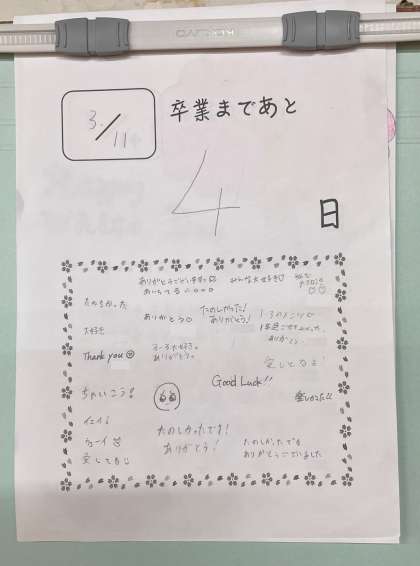 3/11
卒業まであと
4
日
ありがとうございます
みんな大好き♡
たのしかった
ありがとう♡
たのしかった!
ありがとう!
大好き
ずーっと大好き。
ありがとう。
Thank you
愛してるよ!
Good Luck!!
ちゃいこう!
楽しかった!!
イェイ!
ウェーイ
愛してる
たのしかったです!
ありがとう!
たのしかったでも
ありがとうございました